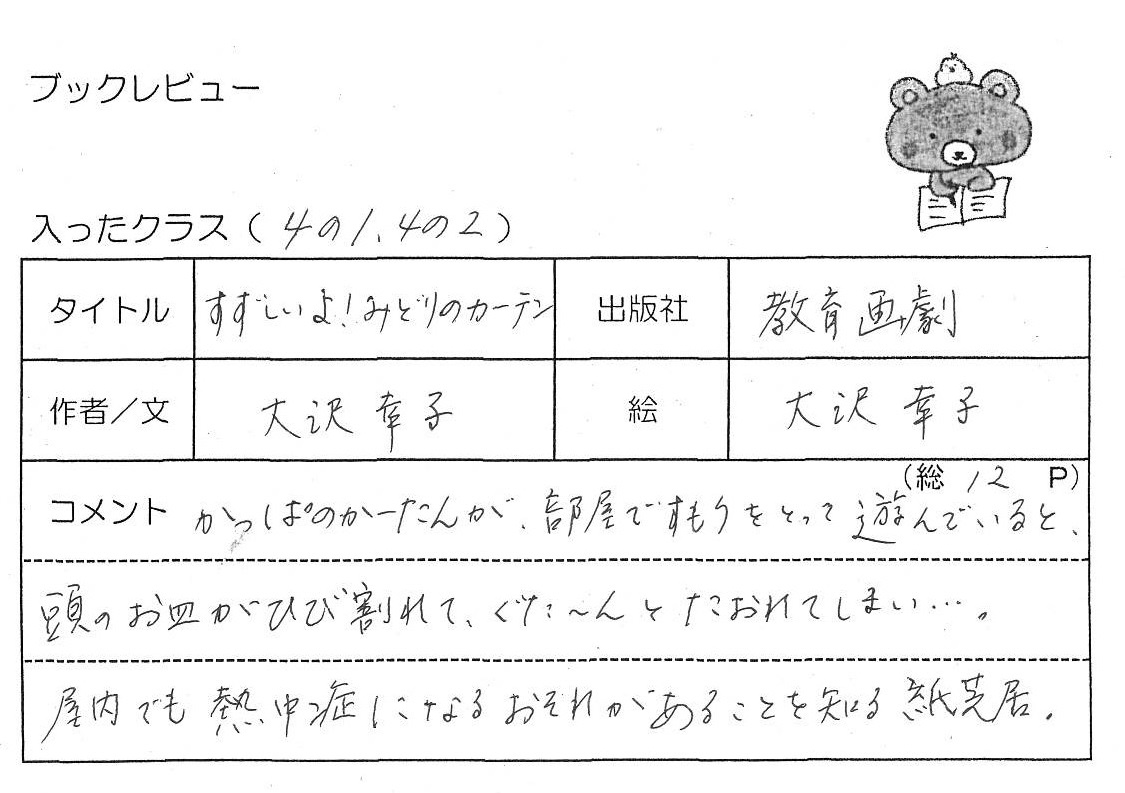 ブックレビュー
入ったクラス（4の1、4の2）
タイトル すずしいよ！みどりのカーテン 出版社 教育画劇
作者／文 大沢幸子 絵 大沢幸子
（総 12 P）
コメント かっぱのかーたんが、部屋ですもうをとって遊んでいると、
頭のお皿がひび割れて、ぐた～んとたおれてしまい…。
屋内でも熱中症になるおそれがあることを知る紙芝居。